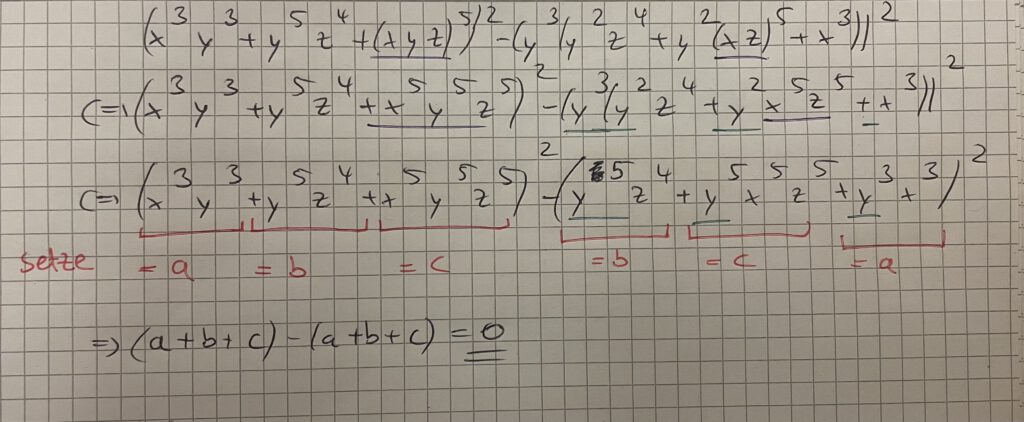 (x³y³+y⁵z⁴+(xyz)⁵)²-(y³(y²z⁴+y²(xz)⁵+x³))²
<=>(x³y³+y⁵z⁴+x⁵y⁵z⁵)²-(y³(y²z⁴+y²x⁵z⁵+x³))²
<=>(x³y³+y⁵z⁴+x⁵y⁵z⁵)²-(y⁵z⁴+y⁵x⁵z⁵+y³x³)²
setze =a =b =c =b =c =a
=>(a+b+c)-(a+b+c)=0